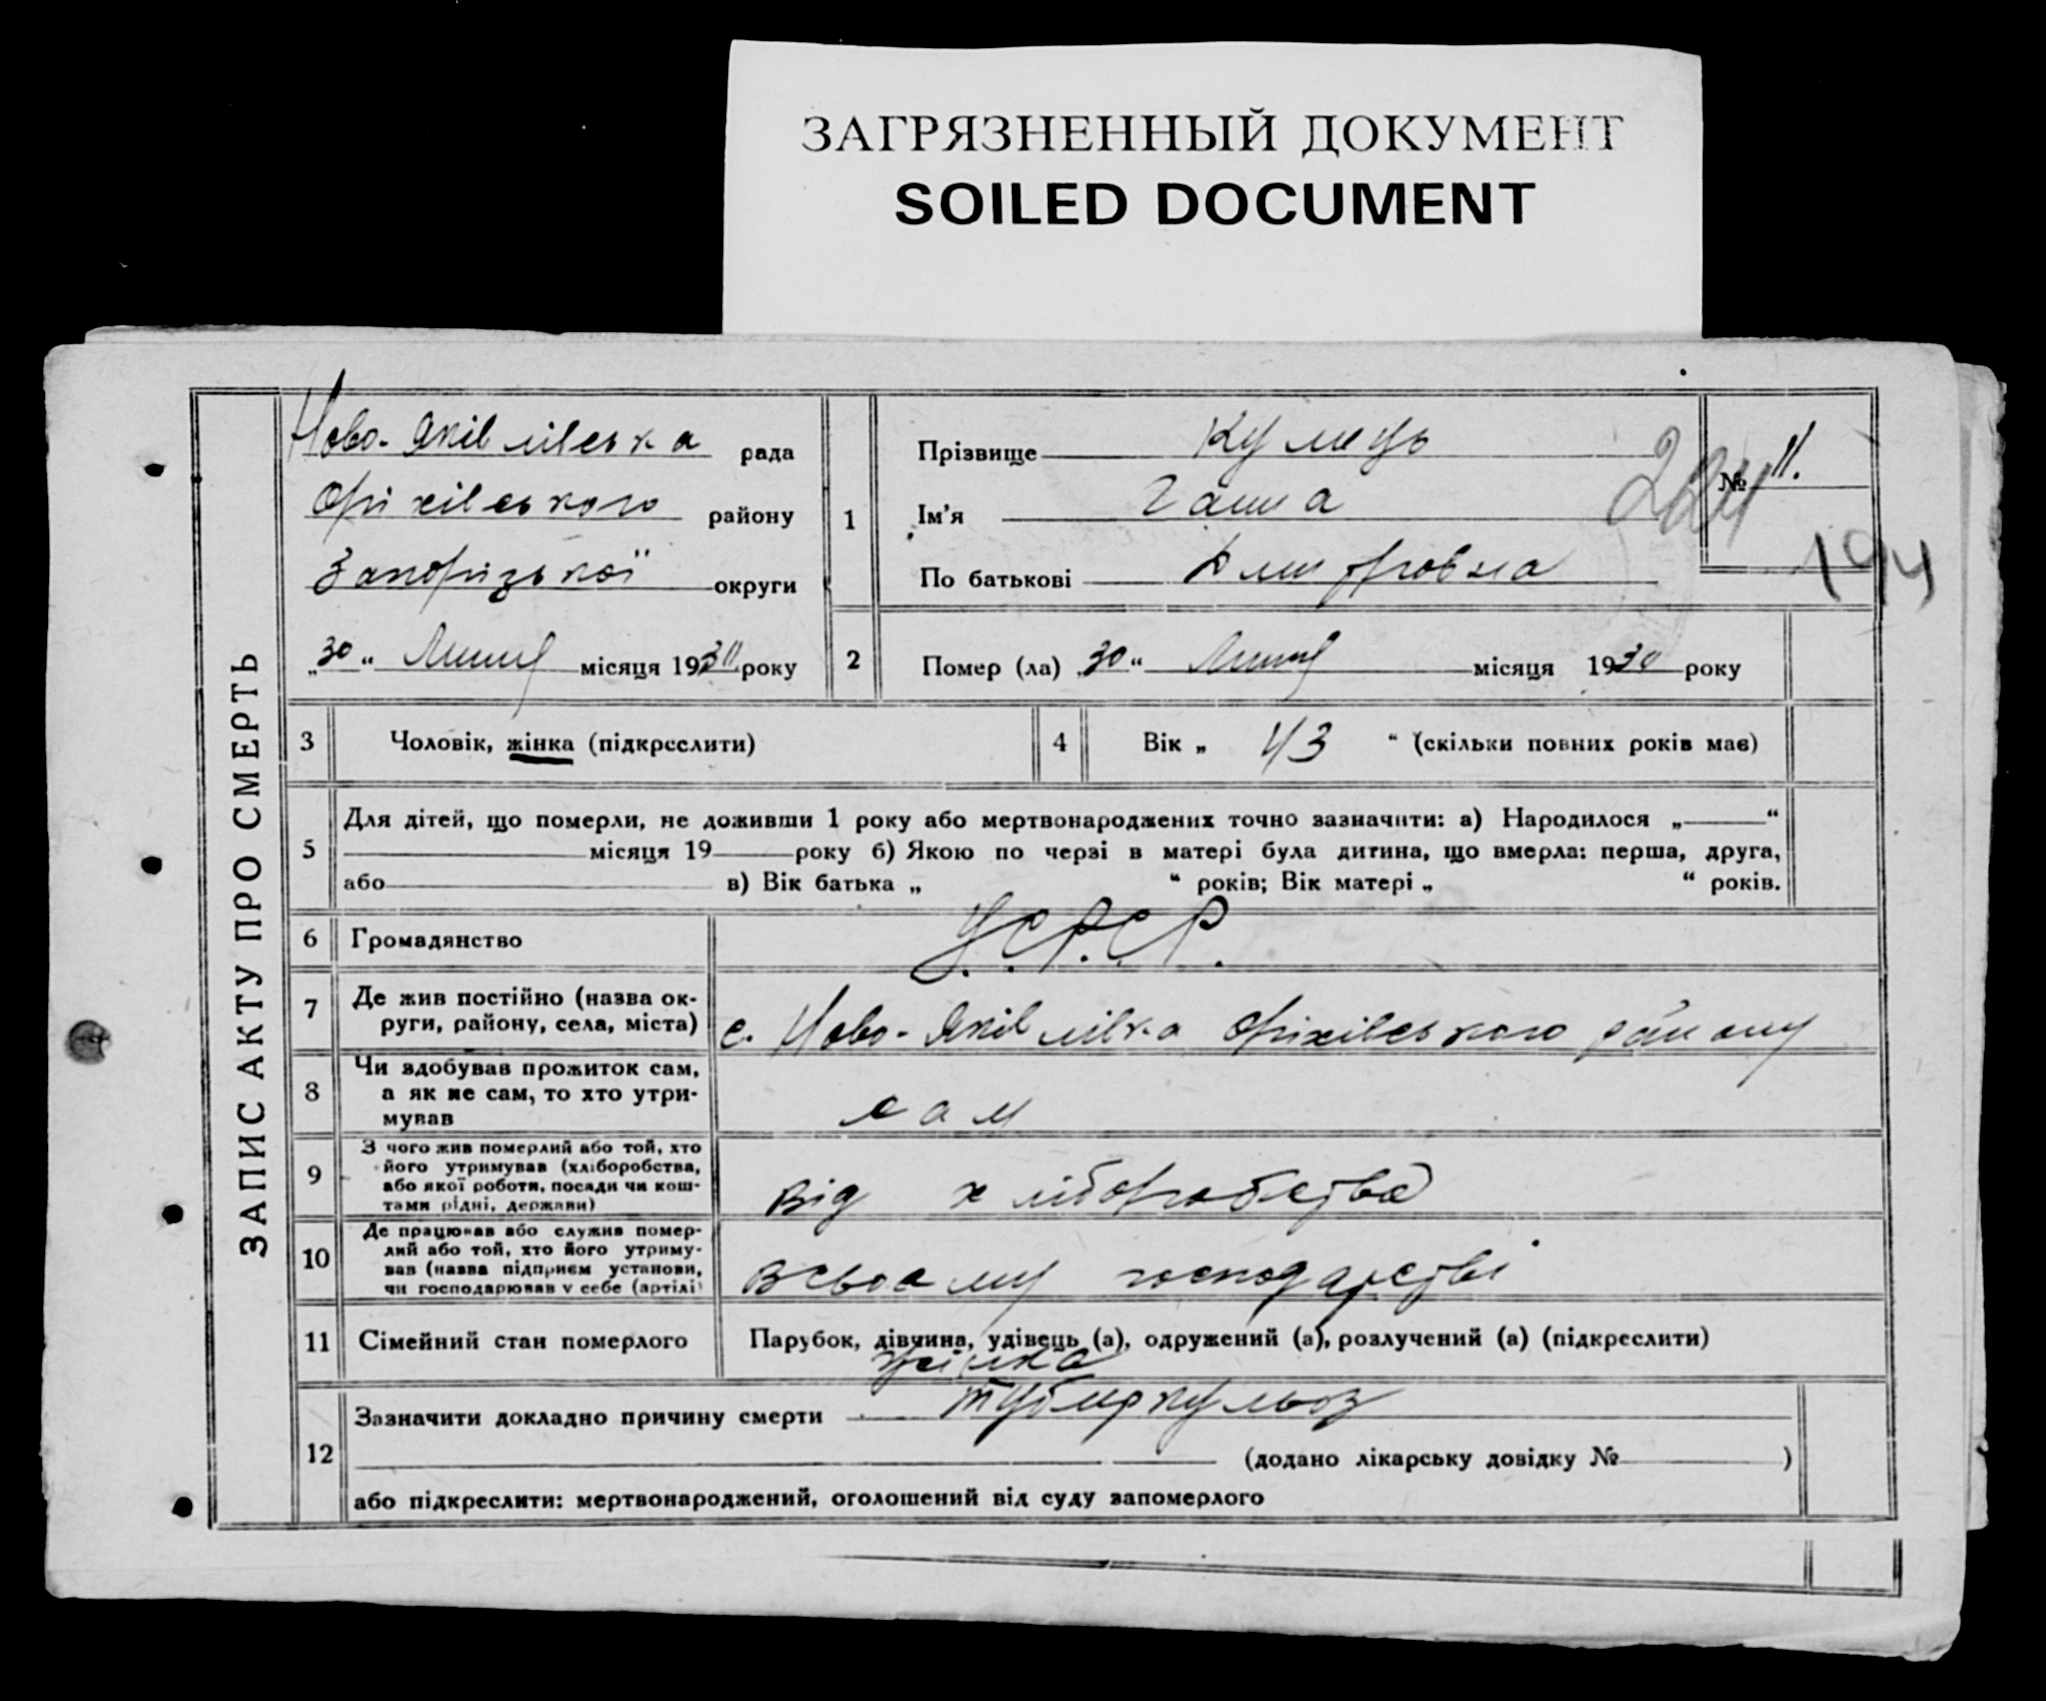 ЗАГРЯЗНЕННЫЙ ДОКУМЕНТ
SOILED DOCUMENT
ЗАПИС АКТУ ПРО СМЕРТЬ
Ново-Яківлівська рада
Оріхівського району
Запорізької округи
„30“ Липня місяця 1930 року
1
Прізвище Кумець
Ім'я Ганна
По батькові Дмитровна
№ 11.
194
2 Помер (ла) „30“ Липня місяця 1930 року
3 Чоловік, жінка (підкреслити)
4 Вік „ 43 “ (скільки повних років має)
5 Для дітей, що померли, не доживши 1 року або мертвонароджених точно зазначити: а) Народилося „ “
місяця 19 року б) Якою по черзі в матері була дитина, що вмерла: перша, друга,
або в) Вік батька „ “ років; Вік матері „ “ років.
6 Громадянство У.С.Р.С.Р.
7 Де жив постійно (назва ок-
руги, району, села, міста)
с. Ново-Яківлівка Оріхівського району
8 Чи здобував прожиток сам,
а як не сам, то хто утри-
мував
сам
9 З чого жив померлий або той, хто
його утримував (хліборобства,
або якої роботи, посади чи кош-
тами рідні, держави)
від хліборобства
10 Де працював або служив помер-
лий або той, хто його утриму-
вав (назва підприєм установи,
чи господарював у себе (артілі)
в своему господарстві
11 Сімейний стан померлого
Парубок, дівчина, удівець (а), одружений (а), розлучений (а) (підкреслити)
жінка
12 Зазначити докладно причину смерти туберкульоз
(додано лікарську довідку № )
або підкреслити: мертвонароджений, оголошений від суду запомерлого